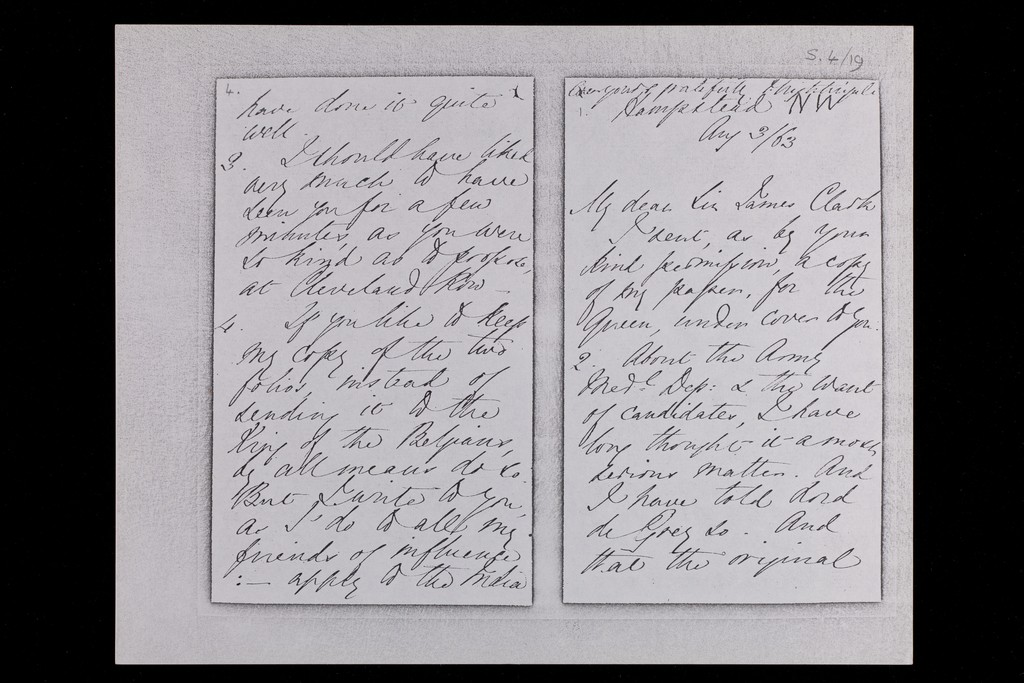 S.4/19
4.
have done it quite
well.
3. I should have liked
very much to have
seen you for a few
minutes, as you were
so kind as to propose,
at Cleveland Row -
4. If you like to keep
my copy of the two
folios, instead of
sending it to the
King of the Belgians,
by all means do so.
But I write to you,
as I do to all my
friends of influence
:— apply to the India
ever yours gratefully F Nightingale
1. Hampstead NW
Aug 3/63
My dear Sir James Clark
I sent, as by your
kind permission, a copy
of my paper, for the
Queen, under cover to you.
2. About the Army
Medl. Dep: & the want
of candidates, I have
long thought it a most
serious matter. And
I have told Lord
de Grey so. And
that the original